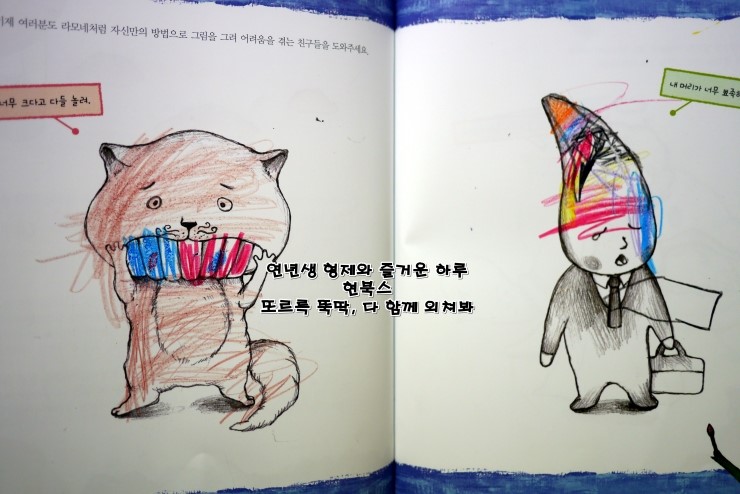 이제 여러분도 라모네처럼 자신만의 방법으로 그림을 그려 어려움을 겪는 친구들을 도와주세요.
너무 크다고 다들 놀려.
내 머리가 너무 뾰족하
연년생 형제와 즐거운 하루
현북스
또르륵 뚝딱, 다 함께 외쳐봐